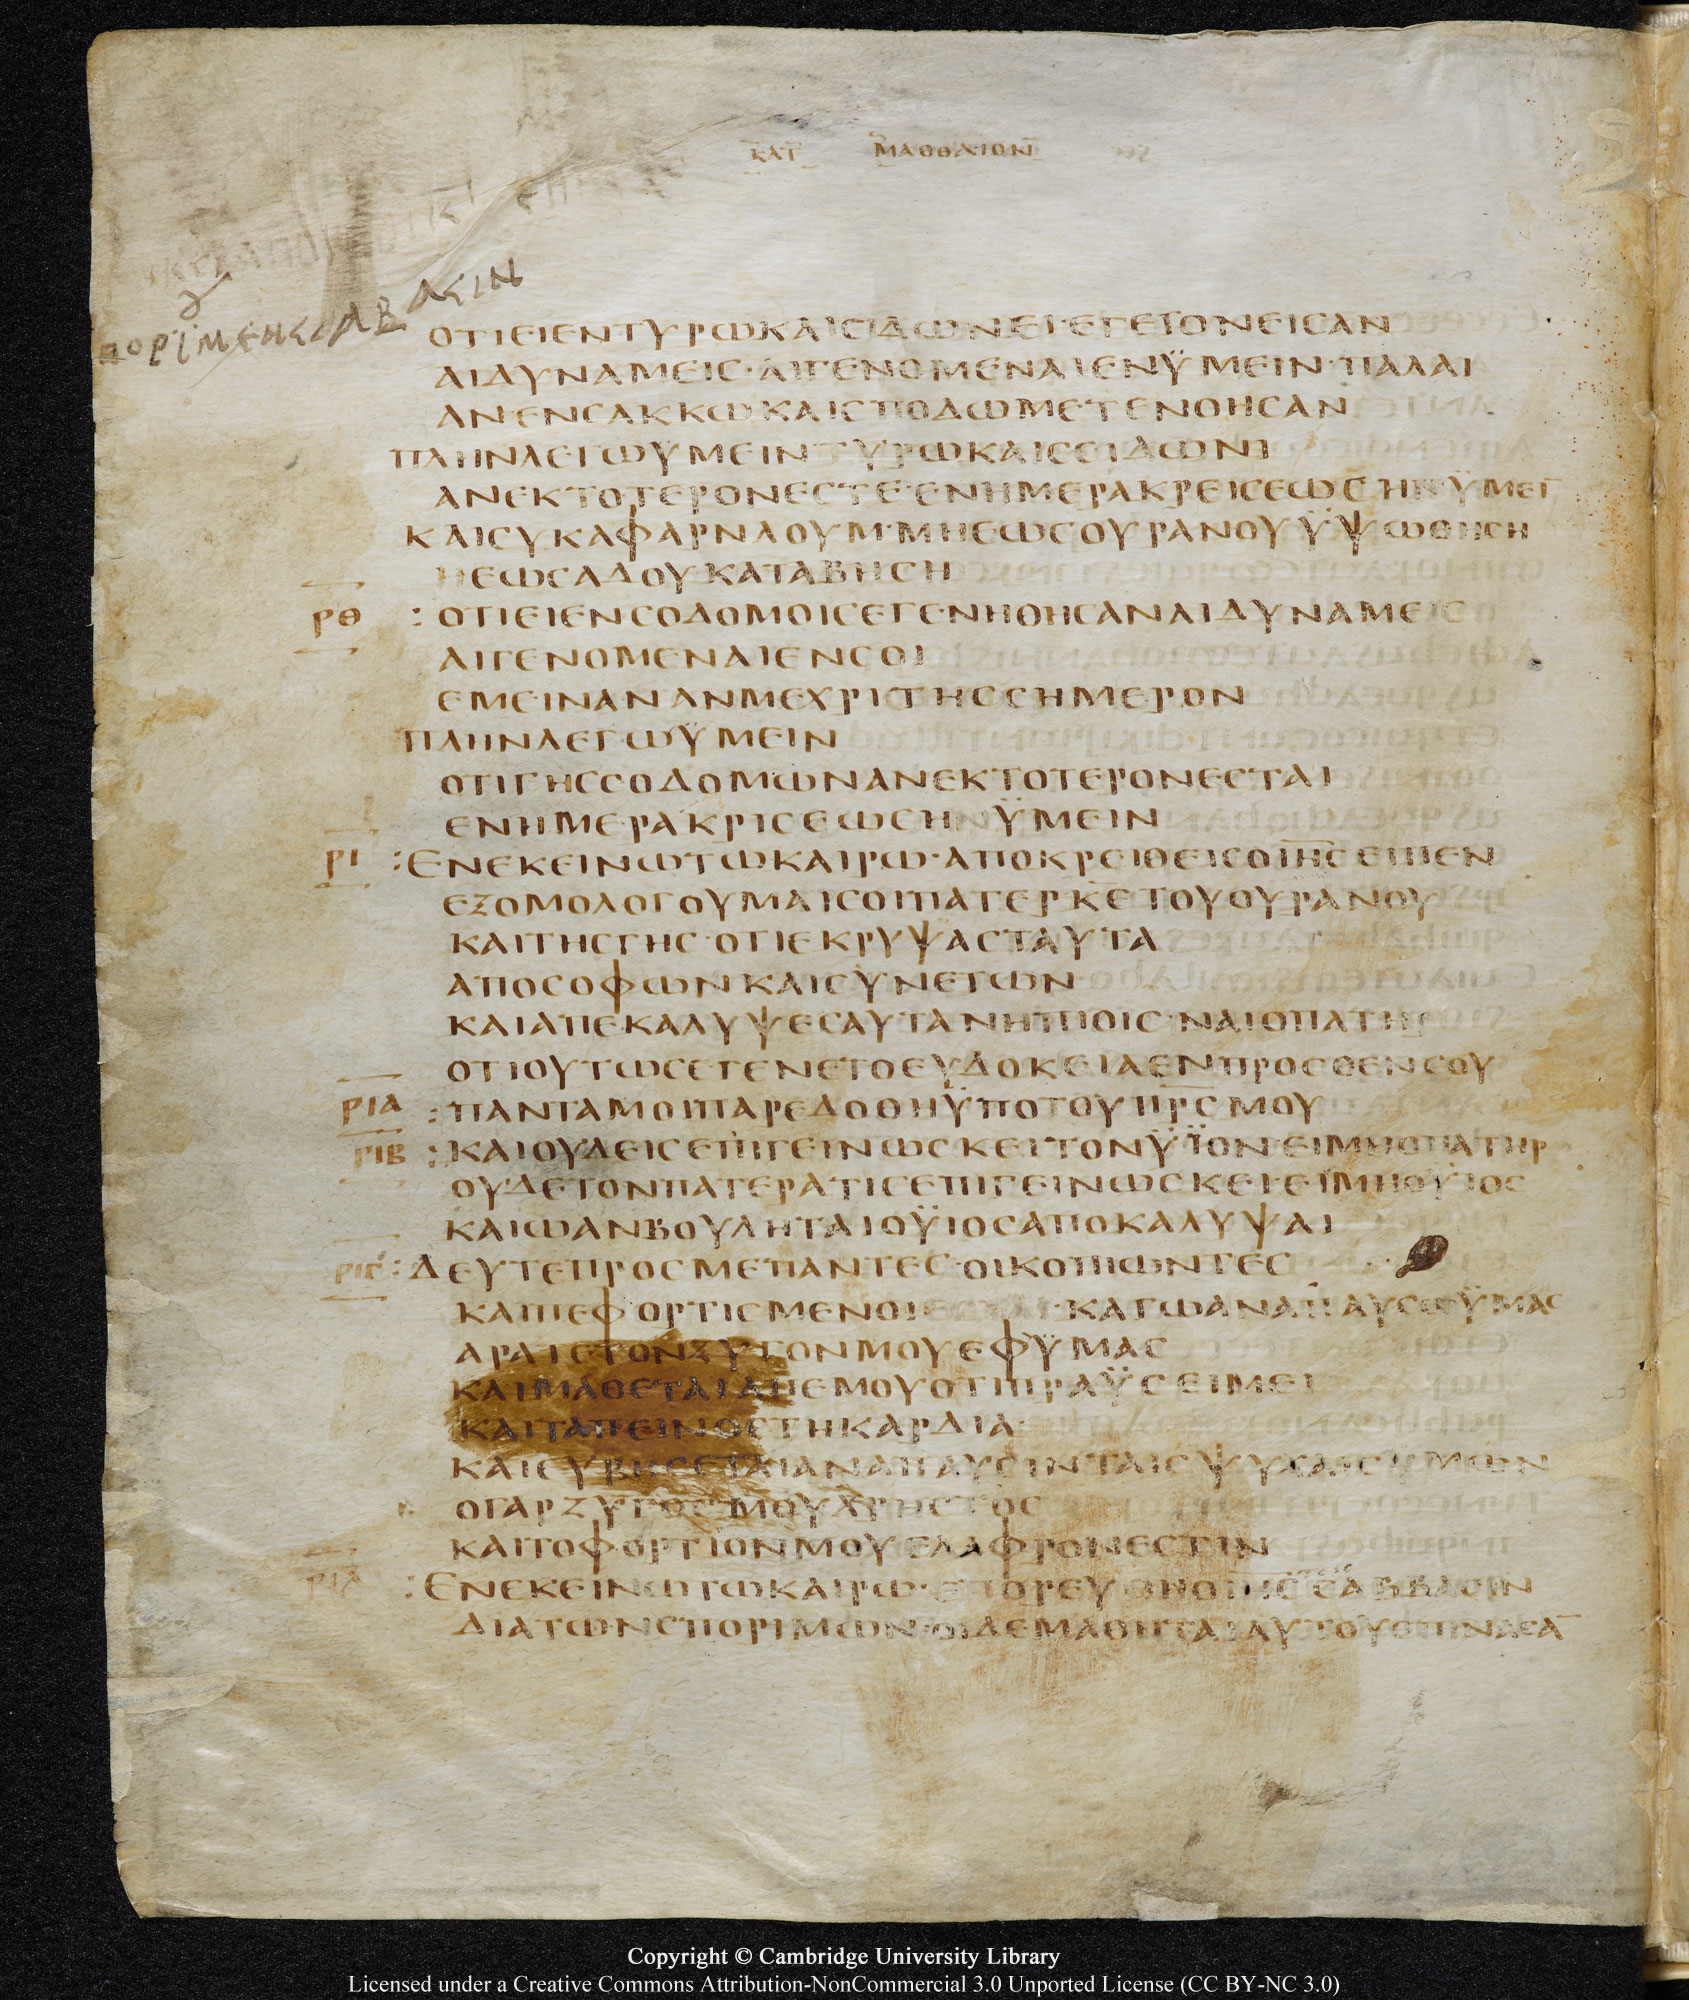 ΚΑΤ ΜΑΘΘΑΙΟΝ
ΟΤΙΕΙΕΝΤΥΡΩΚΑΙΣΙΔΩΝΕΙ·ΕΓΕΓΟΝΕΙΣΑΝ
ΑΙΔΥΝΑΜΕΙΣ·ΑΙΓΕΝΟΜΕΝΑΙΕΝΫΜΕΙΝ·ΠΑΛΑΙ
ΑΝΕΝΣΑΚΚΩΚΑΙΣΠΟΔΩΜΕΤΕΝΟΗΣΑΝ
ΠΛΗΝΛΕΓΩΫΜΕΙΝΤΥΡΩΚΑΙΣΕΙΔΩΝΙ
ΑΝΕΚΤΟΤΕΡΟΝΕΣΤΕ·ΕΝΗΜΕΡΑΚΡΕΙΣΕΩΣΗΝΫΜΕΙ
ΚΑΙΣΥΚΑΦΑΡΝΑΟΥΜ·ΜΗΕΩΣΟΥΡΑΝΟΥΫΨΩΘΗΣΗ
ΗΕΩΣΑΔΟΥΚΑΤΑΒΗΣΗ
ΡΘ :ΟΤΙΕΙΕΝΣΟΔΟΜΟΙΣΕΓΕΝΗΘΗΣΑΝΑΙΔΥΝΑΜΕΙΣ
ΑΙΓΕΝΟΜΕΝΑΙΕΝΣΟΙ
ΕΜΕΙΝΑΝΑΝΜΕΧΡΙΤΗΣΣΗΜΕΡΟΝ
ΠΛΗΝΛΕΓΩΫΜΕΙΝ
ΟΤΙΓΗΣΣΟΔΟΜΩΝΑΝΕΚΤΟΤΕΡΟΝΕΣΤΑΙ
ΕΝΗΜΕΡΑΚΡΙΣΕΩΣΗΝΫΜΕΙΝ
ΡΙ :ΕΝΕΚΕΙΝΩΤΩΚΑΙΡΩ·ΑΠΟΚΡΕΙΘΕΙΣΟΙΗΣΕΙΠΕΝ
ΕΞΟΜΟΛΟΓΟΥΜΑΙΣΟΙΠΑΤΕΡΚΕΤΟΥΟΥΡΑΝΟΥ
ΚΑΙΤΗΣΓΗΣ·ΟΤΙΕΚΡΥΨΑΣΤΑΥΤΑ
ΑΠΟΣΟΦΩΝΚΑΙΣΥΝΕΤΩΝ
ΚΑΙΑΠΕΚΑΛΥΨΕΣΑΥΤΑΝΗΠΙΟΙΣ·ΝΑΙΟΠΑΤΗΡ
ΟΤΙΟΥΤΩΣΕΓΕΝΕΤΟΕΥΔΟΚΕΙΑΕΝΠΡΟΣΘΕΝΣΟΥ
ΡΙΑ :ΠΑΝΤΑΜΟΙΠΑΡΕΔΟΘΗΫΠΟΤΟΥΠΡΣΜΟΥ
ΡΙΒ :ΚΑΙΟΥΔΕΙΣΕΠΙΓΕΙΝΩΣΚΕΙΤΟΝΫΙΟΝ·ΕΙΜΗΟΠΑΤΗΡ
ΟΥΔΕΤΟΝΠΑΤΕΡΑΤΙΣΕΠΙΓΕΙΝΩΣΚΕΙ·ΕΙΜΗΟΫΙΟΣ
ΚΑΙΩΑΝΒΟΥΛΗΤΑΙΟΫΙΟΣΑΠΟΚΑΛΥΨΑΙ
ΡΙΓ :ΔΕΥΤΕΠΡΟΣΜΕΠΑΝΤΕΣ·ΟΙΚΟΠΙΩΝΤΕΣ
ΚΑΙΠΕΦΟΡΤΙΣΜΕΝΟΙ ·ΚΑΓΩΑΝΑΠΑΥΣΩΫΜΑΣ
ΑΡΑΤΕΤΟΝΖΥΓΟΝΜΟΥΕΦΫΜΑΣ
ΚΑΙΜΑΘΕΤΑΙΑΠΕΜΟΥΟΤΙΠΡΑΫΣΕΙΜΕΙ
ΚΑΙΤΑΠΕΙΝΟΣΤΗΚΑΡΔΙΑ·
ΚΑΙΕΥΡΗΣΕΤΑΙΑΝΑΠΑΥΣΙΝΤΑΙΣΨΥΧΑΙΣΥΜΩΝ
ΟΓΑΡΖΥΓΟΣΜΟΥΧΡΗΣΤΟΣ
ΚΑΙΤΟΦΟΡΤΙΟΝΜΟΥΕΛΑΦΡΟΝΕΣΤΙΝ
ΡΙΔ :ΕΝΕΚΕΙΝΩΤΩΚΑΙΡΩ·ΕΠΟΡΕΥΘΗΟΙΗΣΣΑΒΒΑΣΙΝ
ΔΙΑΤΩΝΣΠΟΡΙΜΩΝ·ΟΙΔΕΜΑΘΗΤΑΙΑΥΤΟΥΕΠΙΝΑΣΑ
Copyright © Cambridge University Library
Licensed under a Creative Commons Attribution-NonCommercial 3.0 Unported License (CC BY-NC 3.0)